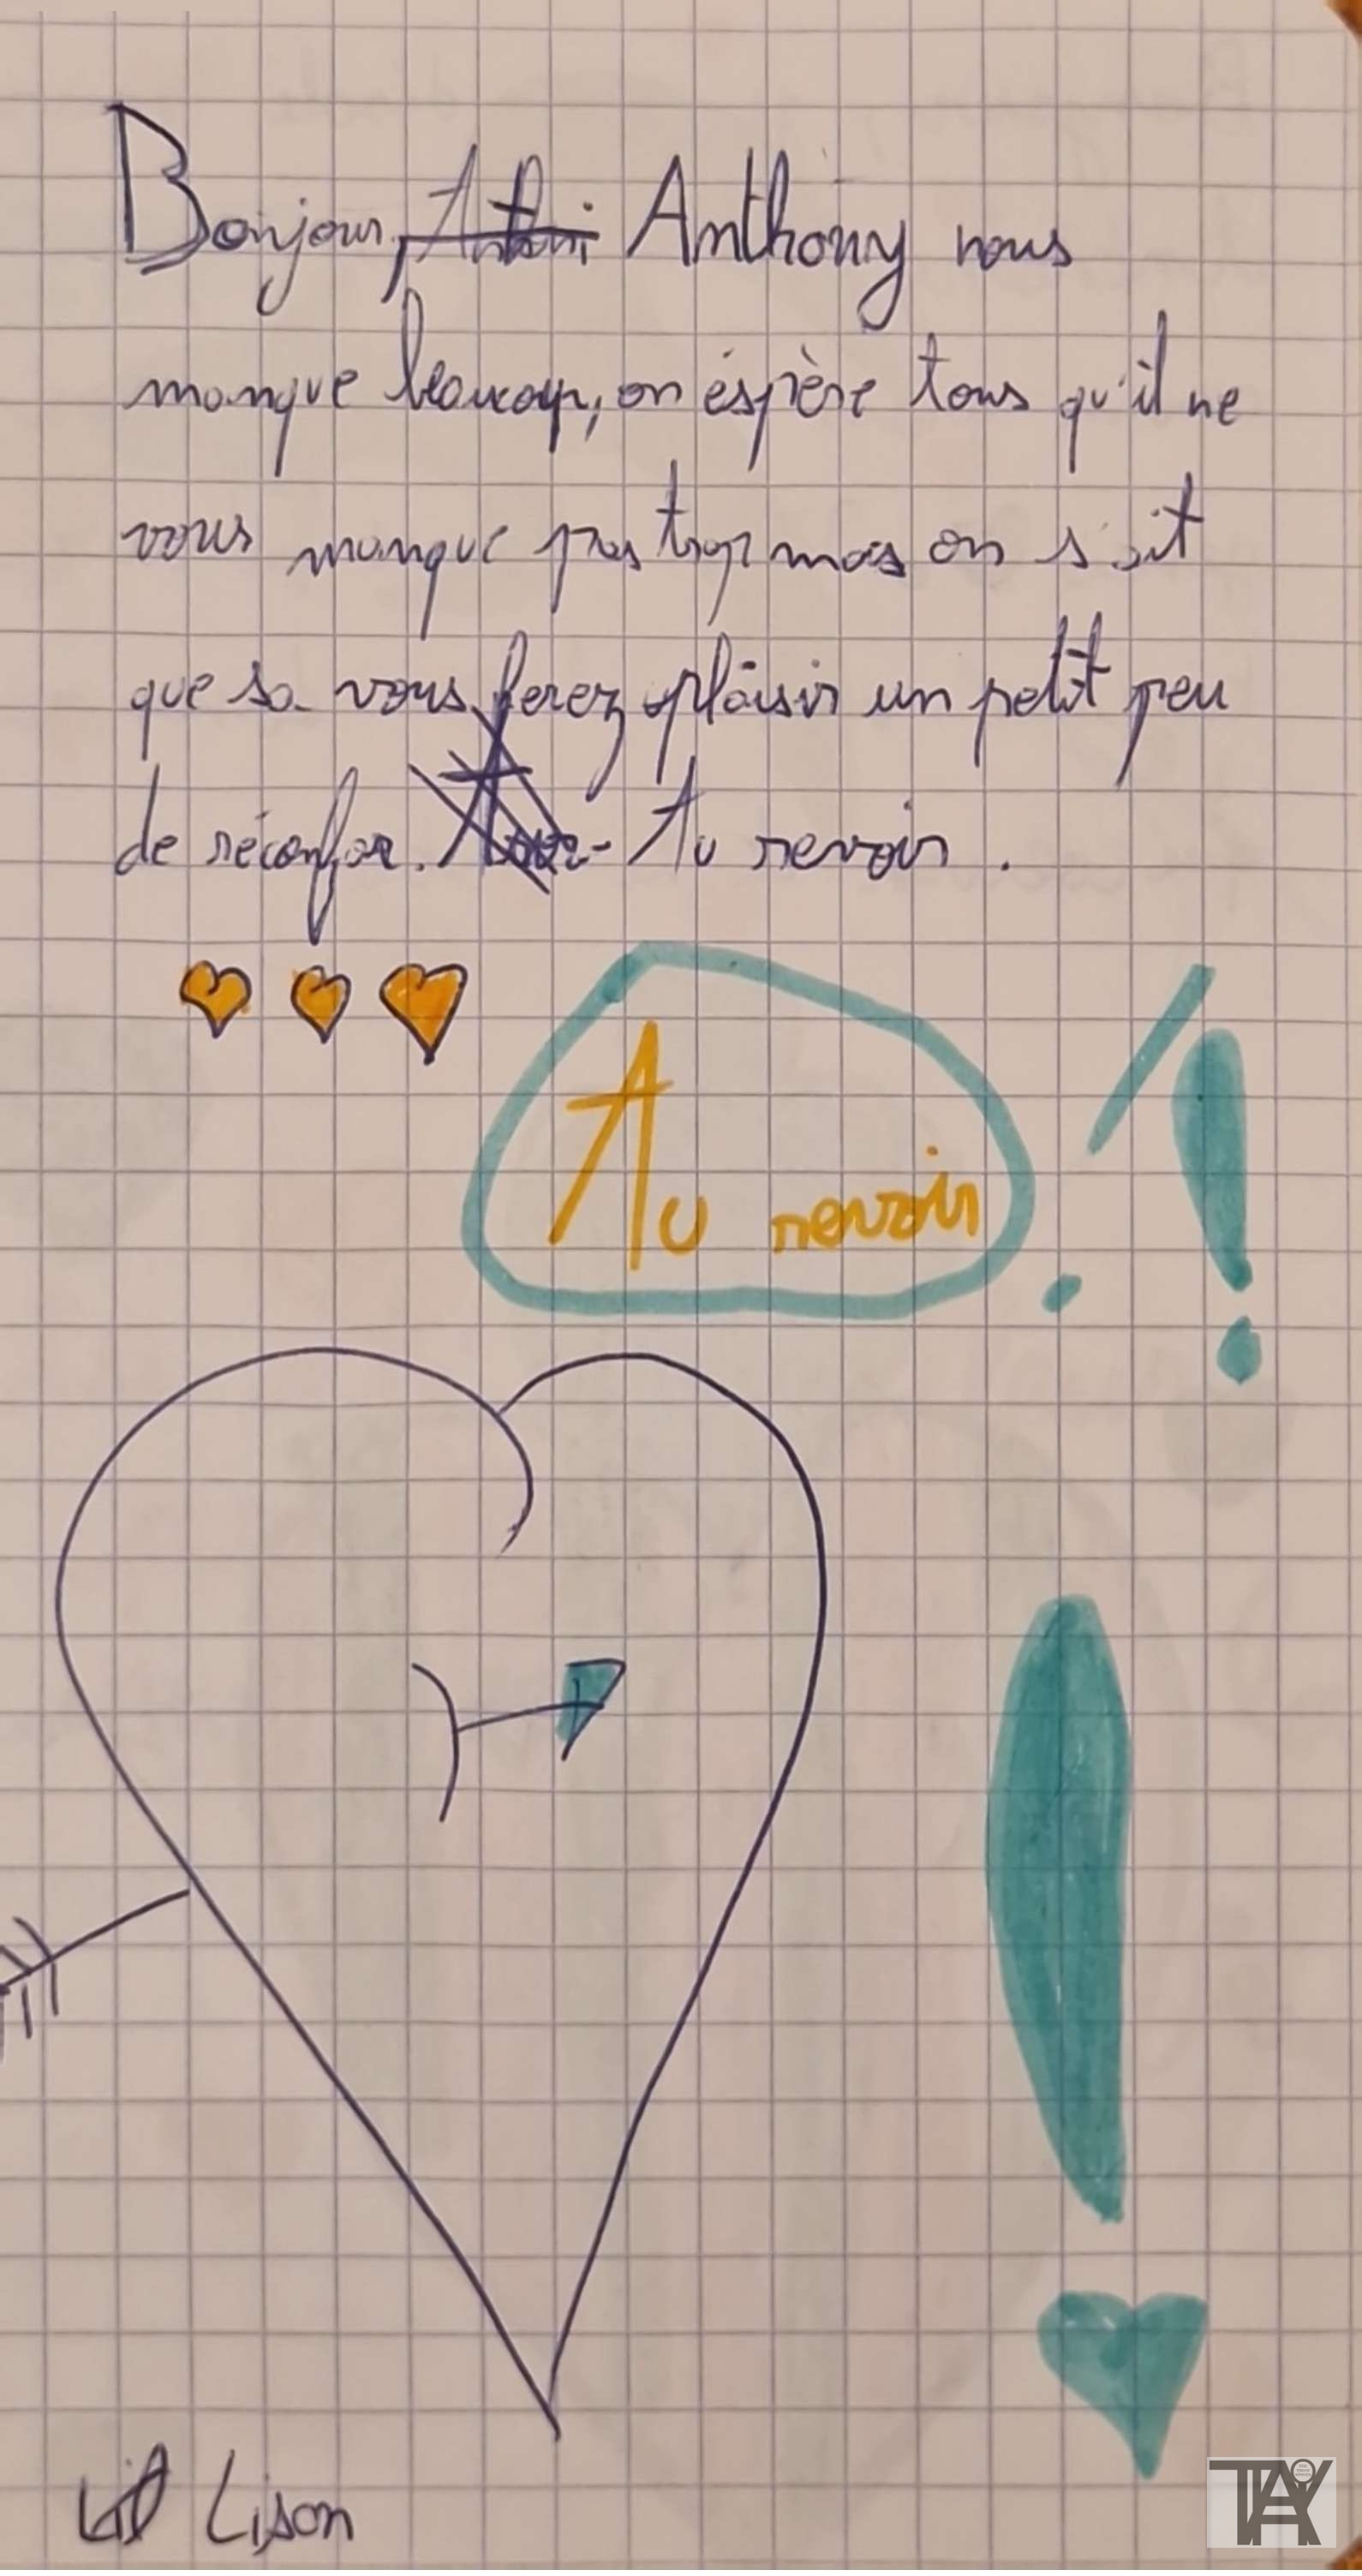 Bonjour, Anthony nous
manque beaucoup, on éspère tous qu'il ne
vous manque pas trop mais on s'ait
que sa vous ferez plaisir un petit peu
de réconfor. Au revoir.
Au revoir !!
!
Lison
TAY